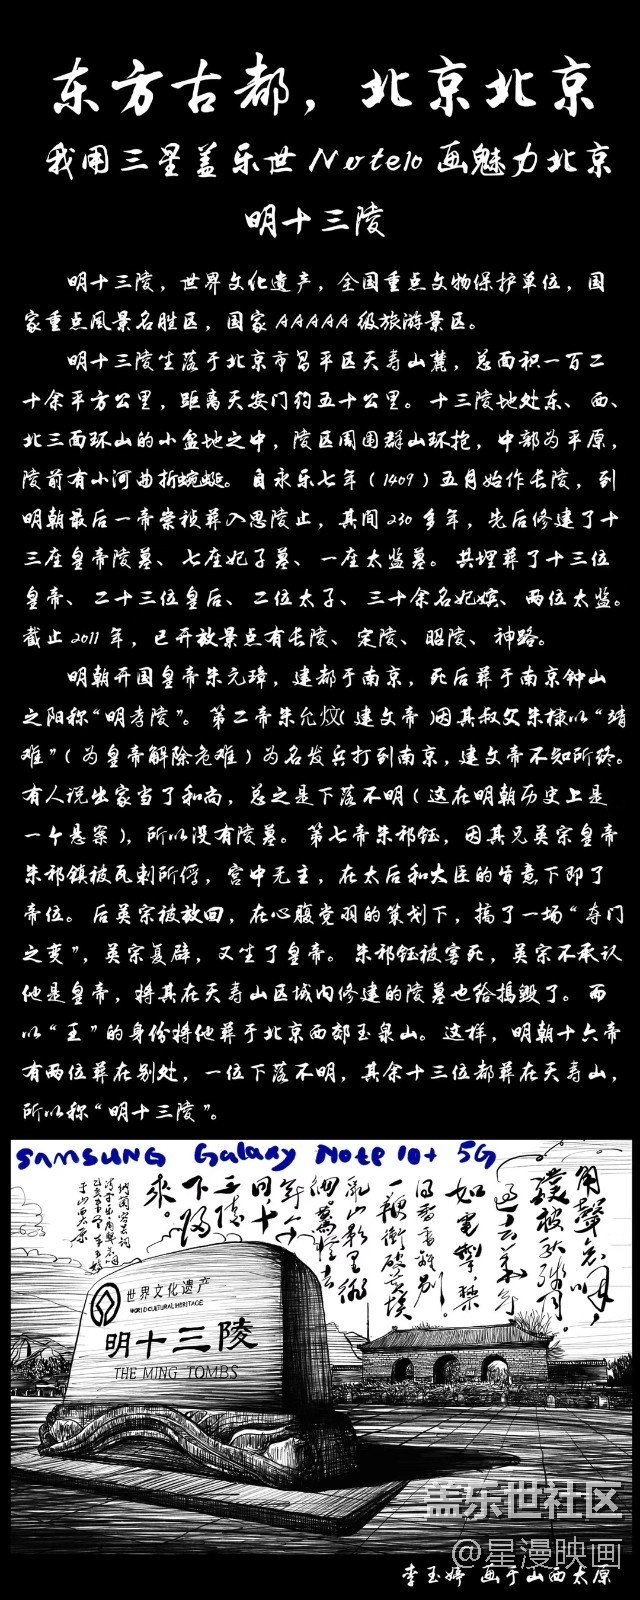 东方古都，北京北京
我用三星盖乐世Note10画魅力北京
明十三陵
明十三陵，世界文化遗产，全国重点文物保护单位，国
家重点风景名胜区，国家AAAAA级旅游景区。
明十三陵坐落于北京市昌平区天寿山麓，总面积一百二
十余平方公里，距离天安门约五十公里。十三陵地处东、西、
北三面环山的小盆地之中，陵区周围群山环抱，中部为平原，
陵前有小河曲折蜿蜒。自永乐七年（1409）五月始作长陵，到
明朝最后一帝崇祯葬入思陵止，其间230多年，先后修建了十
三座皇帝陵墓、七座妃子墓、一座太监墓。共埋葬了十三位
皇帝、二十三位皇后、二位太子、三十余名妃嫔、两位太监。
截止2011年，已开放景点有长陵、定陵、昭陵、神路。
明朝开国皇帝朱元璋，建都于南京，死后葬于南京钟山
之阳称“明孝陵”。第二帝朱允炆（建文帝）因其叔父朱棣以“靖
难”（为皇帝解除危难）为名发兵打到南京，建文帝不知所终。
有人说出家当了和尚，总之是下落不明（这在明朝历史上是
一个悬案），所以没有陵墓。第七帝朱祁钰，因其兄英宗皇帝
朱祁镇被瓦剌所俘，宫中无主，在太后和大臣的旨意下即了
帝位。后英宗被放回，在心腹党羽的策划下，搞了一场“夺门
之变”，英宗复辟，又坐了皇帝。朱祁钰被害死，英宗不承认
他是皇帝，将其在天寿山区域内修建的陵墓也给捣毁了。而
以“王”的身份将他葬于北京西郊玉泉山。这样，明朝十六帝
有两位葬在别处，一位下落不明，其余十三位都葬在天寿山，
所以称“明十三陵”。
SAMSUNG Galaxy Note 10+ 5G
如電掣
一鞭衝破
亂山影里
下歸
來。
世界文化遗产
WORLD CULTURAL HERITAGE
明十三陵
THE MING TOMBS
盖乐世社区
@星漫映画
李玉婷 画于山西太原